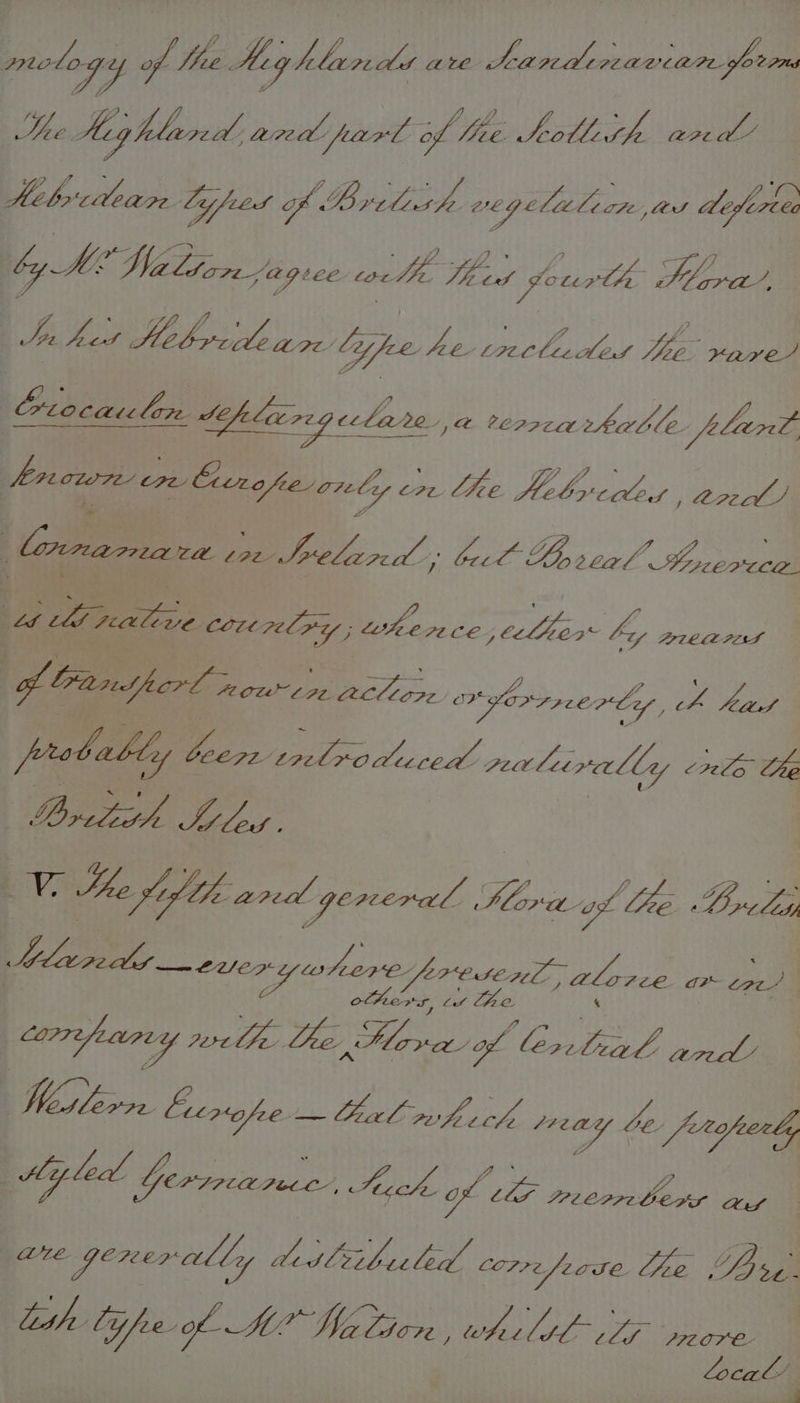 mology of the Highlands are Scandinavian forms
The Highland, and part of the Scottish and
Hebridean types of British vegetation, as defined
by Mr Watson, agree with this fourth Flora.
In his Hebridean type he includes the rare
Eriocaulon septangulare, a remarkable plant,
known in Europe only in the Hebrides, and
Connamara in Ireland; but Boreal America
is its native country; whence, either by means
of transport now in action or formerly, it has
probably been introduced naturally into the
British Isles.
V. The fifth and general Flora of the British
Islands — everywhere present, alone or in
others, is the
company with the Flora of Central and
Western Europe — that which may be properly
styled Germanic. Such of its members as
are generally distributed compose the Bri-
tish type of Mr Watson, whilst its more
local